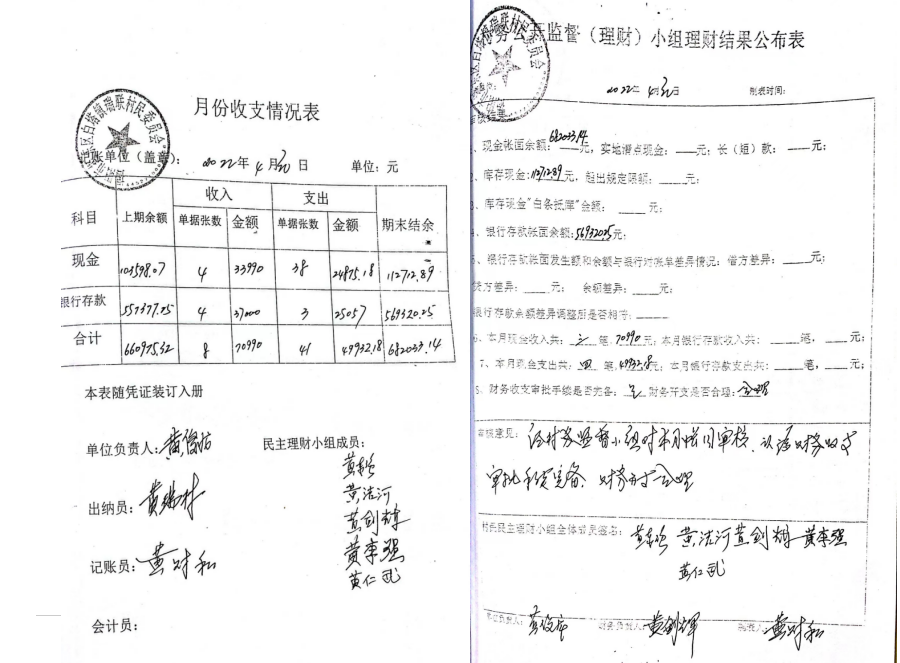 月份收支情况表
区白塔镇瑞联村民委员会
记账单位（盖章）： 2022年 4月30日 单位：元
科目 上期余额 收入 支出 期末结余
单据张数 金额 单据张数 金额
现金 103598.07 4 33990 38 24875.18 112712.89
银行存款 557377.25 4 37000 3 25057 569320.25
合计 660975.32 8 70990 41 49932.18 682033.14
本表随凭证装订入册
单位负责人： 民主理财小组成员：
黄法河
出纳员： 黄剑辉
黄李强
记账员：黄财和
黄仁武
会计员：
务公开监督（理财）小组理财结果公布表
2022年 4月30日 制表时间：
、现金帐面余额：682033.14元，实地清点现金：元；长（短）款：元，
、库存现金：112712.89元，超出规定限额：元；
、库存现金“白条抵库”金额：元；
、银行存款帐面余额：569320.25元；
、银行存款帐面发生额和余额与银行对帐单差异情况：借方差异：元；
贷方差异：元； 余额差异：元；
银行存款余额差异调整后是否相符：
6、本月现金收入共：笔，70990元；本月银行存款收入共：笔，元；
7、本月现金支出共：笔，49932.18元；本月银行存款支出共：笔，元；
8、财务收支审批手续是否完备：是 财务开支是否合理：合理
审核意见：经财务监督小组对本月帐目审核，认为财务收支
审批手续完备，财务开支合理
村民民主理财小组全体成员签名： 黄法河 黄剑辉 黄李强
黄仁武
单位负责人： 财务负责人：黄剑辉 制表人：黄财和